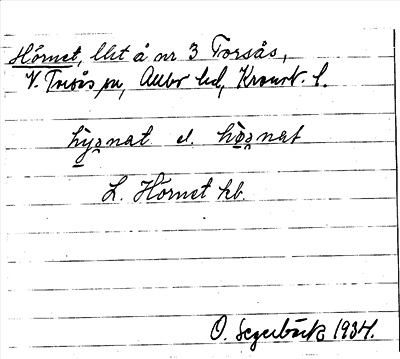 Hörnet, lht å nr 3 Torsås,
V. Torsås sn, Allbo hd, Kronob. l.
hy̱ṟnat el. hö̱ṟnat
L. Hörnet kb.
O. Segerbäck 1934.